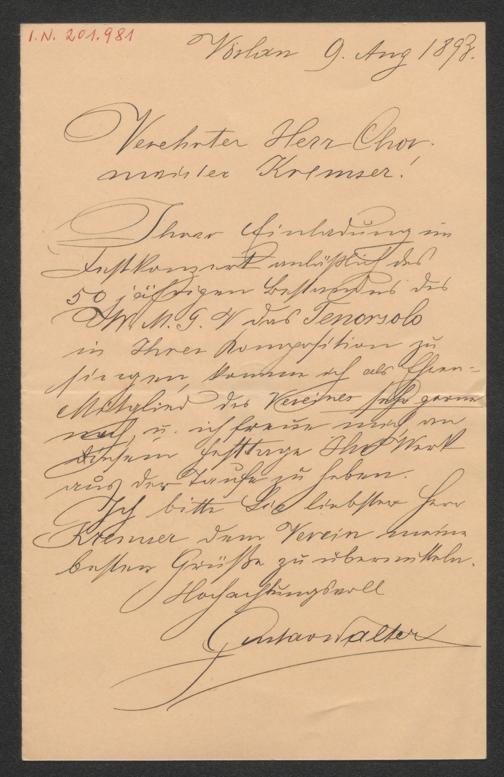 I. N. 201.981
Vöslau 9. Aug 1893.
Verehrter Herr Chor-
meister Kremser!
Ihrer Einladung im
Festkonzert anläßlich des
50 jährigen Bestandes des
W. M. G. V das Tenorsolo
in Ihrer Komposition zu
singen, komme ich als Ehren-
Mitglied des Vereines sehr gerne
nach, u. ich freue mich an
diesem Festtage Ihr Werk
aus der Taufe zu heben.
Ich bitte Sie liebster Herr
Kremser dem Verein meine
besten Grüße zu übermitteln.
Hochachtungsvoll
Gustav Walter